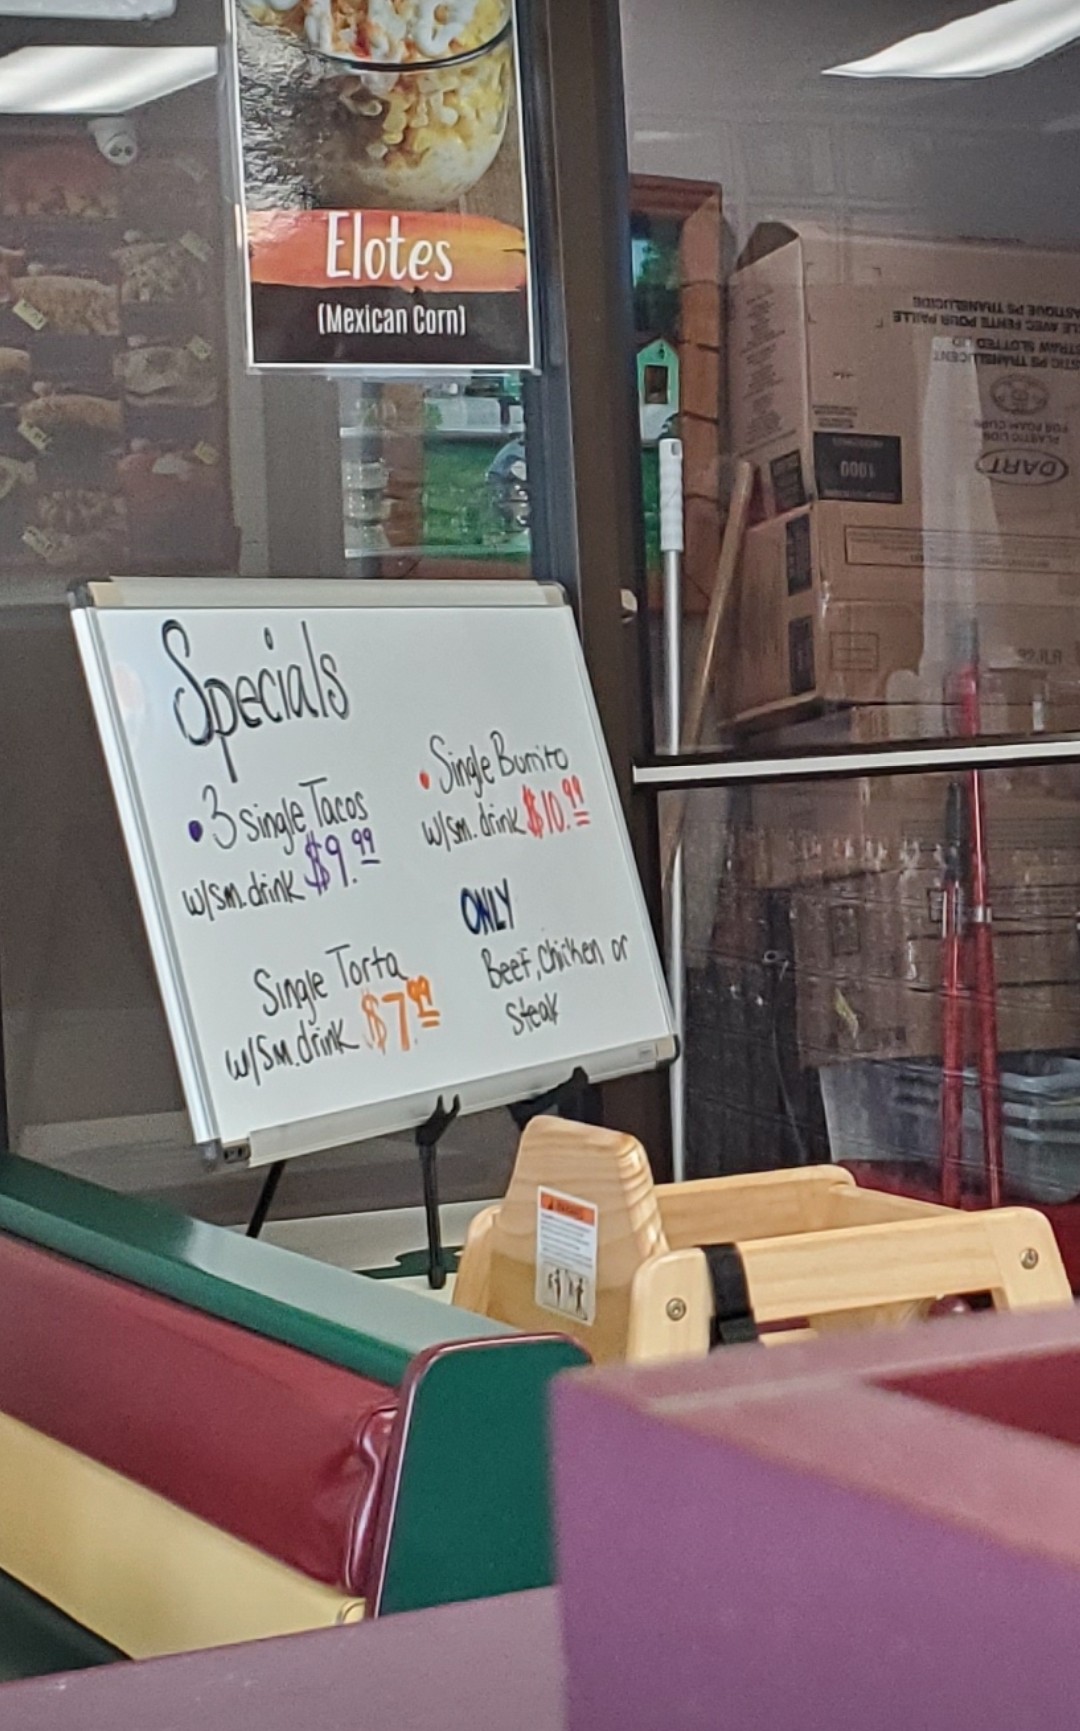 Elotes
(Mexican Corn)
Specials
• 3 single Tacos
w/sm. drink $9.99
• Single Burrito
w/sm. drink $10.99
Single Torta
w/sm. drink $7.99
ONLY
Beef, chicken or
steak
DART
PLASTIC LIDS
FOR FOAM CUPS
1000